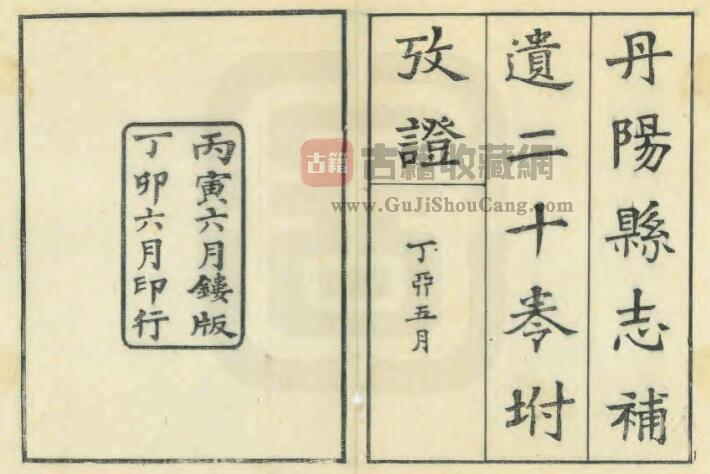 丹陽縣志補
遺二十弮坿
攷證
丁亞五月
丙寅六月鏤版
丁卯六月印行
古籍
古籍收藏網
www.GuJiShouCang.com